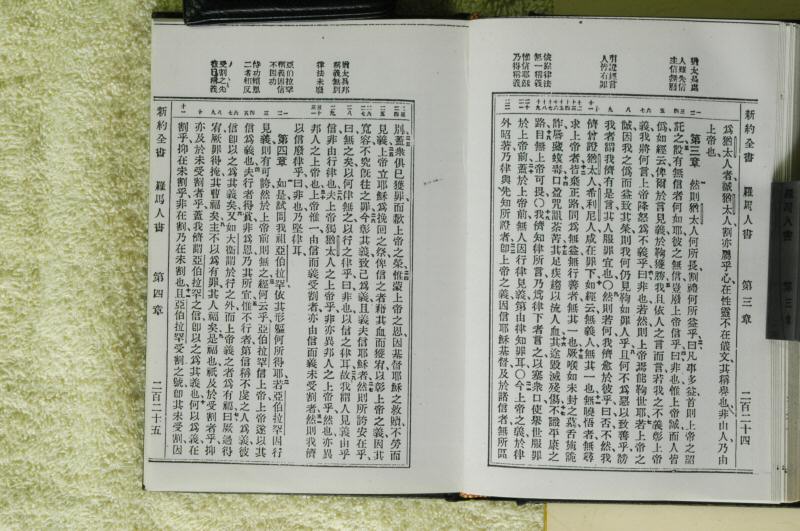 猶太爲爲
人雖失信
主信無廢
引經證言
人皆有罪
依從律法
無一稱義
惟信耶穌
乃得稱義
爲猶太人者誠猶太人割亦屬乎心在性靈不在儀文其稱譽也非由人乃由
上帝也
第三章 然則猶太人何所長割禮何所益乎曰凡事多益首則上帝之詔
託之設有無信者何如耶彼之無信豈廢上帝信乎曰非也惟上帝誠而人皆
僞如經云俾爾於言見義於鞫獲勝我且依人之言而言若我之不義彰上帝之
義我將何言上帝降怒爲不義乎曰非也若然則上帝焉能鞫世耶若上帝之
誠因我之僞而益致其榮則我何仍見鞫如罪人乎且何不爲惡以致善乎謗
我者謂我儕有是言其人服罪宜也〇然則若何我儕愈於彼乎曰否不然我
儕曾證猶太人希利尼人咸在罪下如經云無義人無其一也無曉悟者無尋
求上帝者皆棄正路同爲無益無行善者無其一也厥喉如未封之墓舌施詭
詐唇藏蝮毒口盈咒詛荼苦其足疾趨以流人血其途毀滅殘傷不識平康之
路目無上帝可畏〇我儕知律所言乃爲律下者言之以塞衆口使舉世服罪
於上帝前蓋於上帝前無人因行律見義第由律知罪耳〇今上帝之義於律
外昭著乃律與先知所證者卽上帝之義因信耶穌基督及於諸信者無所區
新約全書 羅馬人書 第三章 二百二十四
猶太異邦
稱義無別
律法未廢
亞伯拉罕
稱義因信
不因功
恃功賴恩
二者相反
受割之先
已稱義
別蓋衆俱已獲罪而歉上帝之榮惟蒙上帝之恩因基督耶穌之救贖不勞而
見義上帝立耶穌爲挽回之祭俾信之者藉其血而獲宥以彰上帝之義因其
寬容不究旣往之罪今彰其義致己爲義且義夫信耶穌者然則所誇安在乎
曰無之矣以何律無之以行之律乎曰非也以信之律耳故我謂人見義由乎
信非由行律也夫上帝獨猶太人之上帝乎非亦異邦人之上帝乎然也亦異
邦人之上帝也上帝惟一由信而義受割者亦由信而義未受割者然則我儕
以信廢律乎曰非也乃堅律耳
第四章 如是試問我祖亞伯拉罕依其形軀何所得耶若亞伯拉罕因行
見義則有可誇然於上帝前則無之經何云乎亞伯拉罕信上帝上帝遂以其
信爲義也夫行者得賞非爲恩乃其所宜惟不行者第信稱不虔之人爲義彼
信卽以之爲其義矣又如大衛謂於行之外而上帝義之者爲有福曰厥過得
宥厥罪得掩其人福矣主不以爲有罪其人福矣是福也祇及於受割者乎抑
亦及於未受割者乎蓋我儕謂亞伯拉罕之信卽以之爲其義也何以爲義在
割乎抑在未割乎非在割乃在未割也且亞伯拉罕受割之號卽其未受割因
新約全書 羅馬人書 第四章 二百二十五